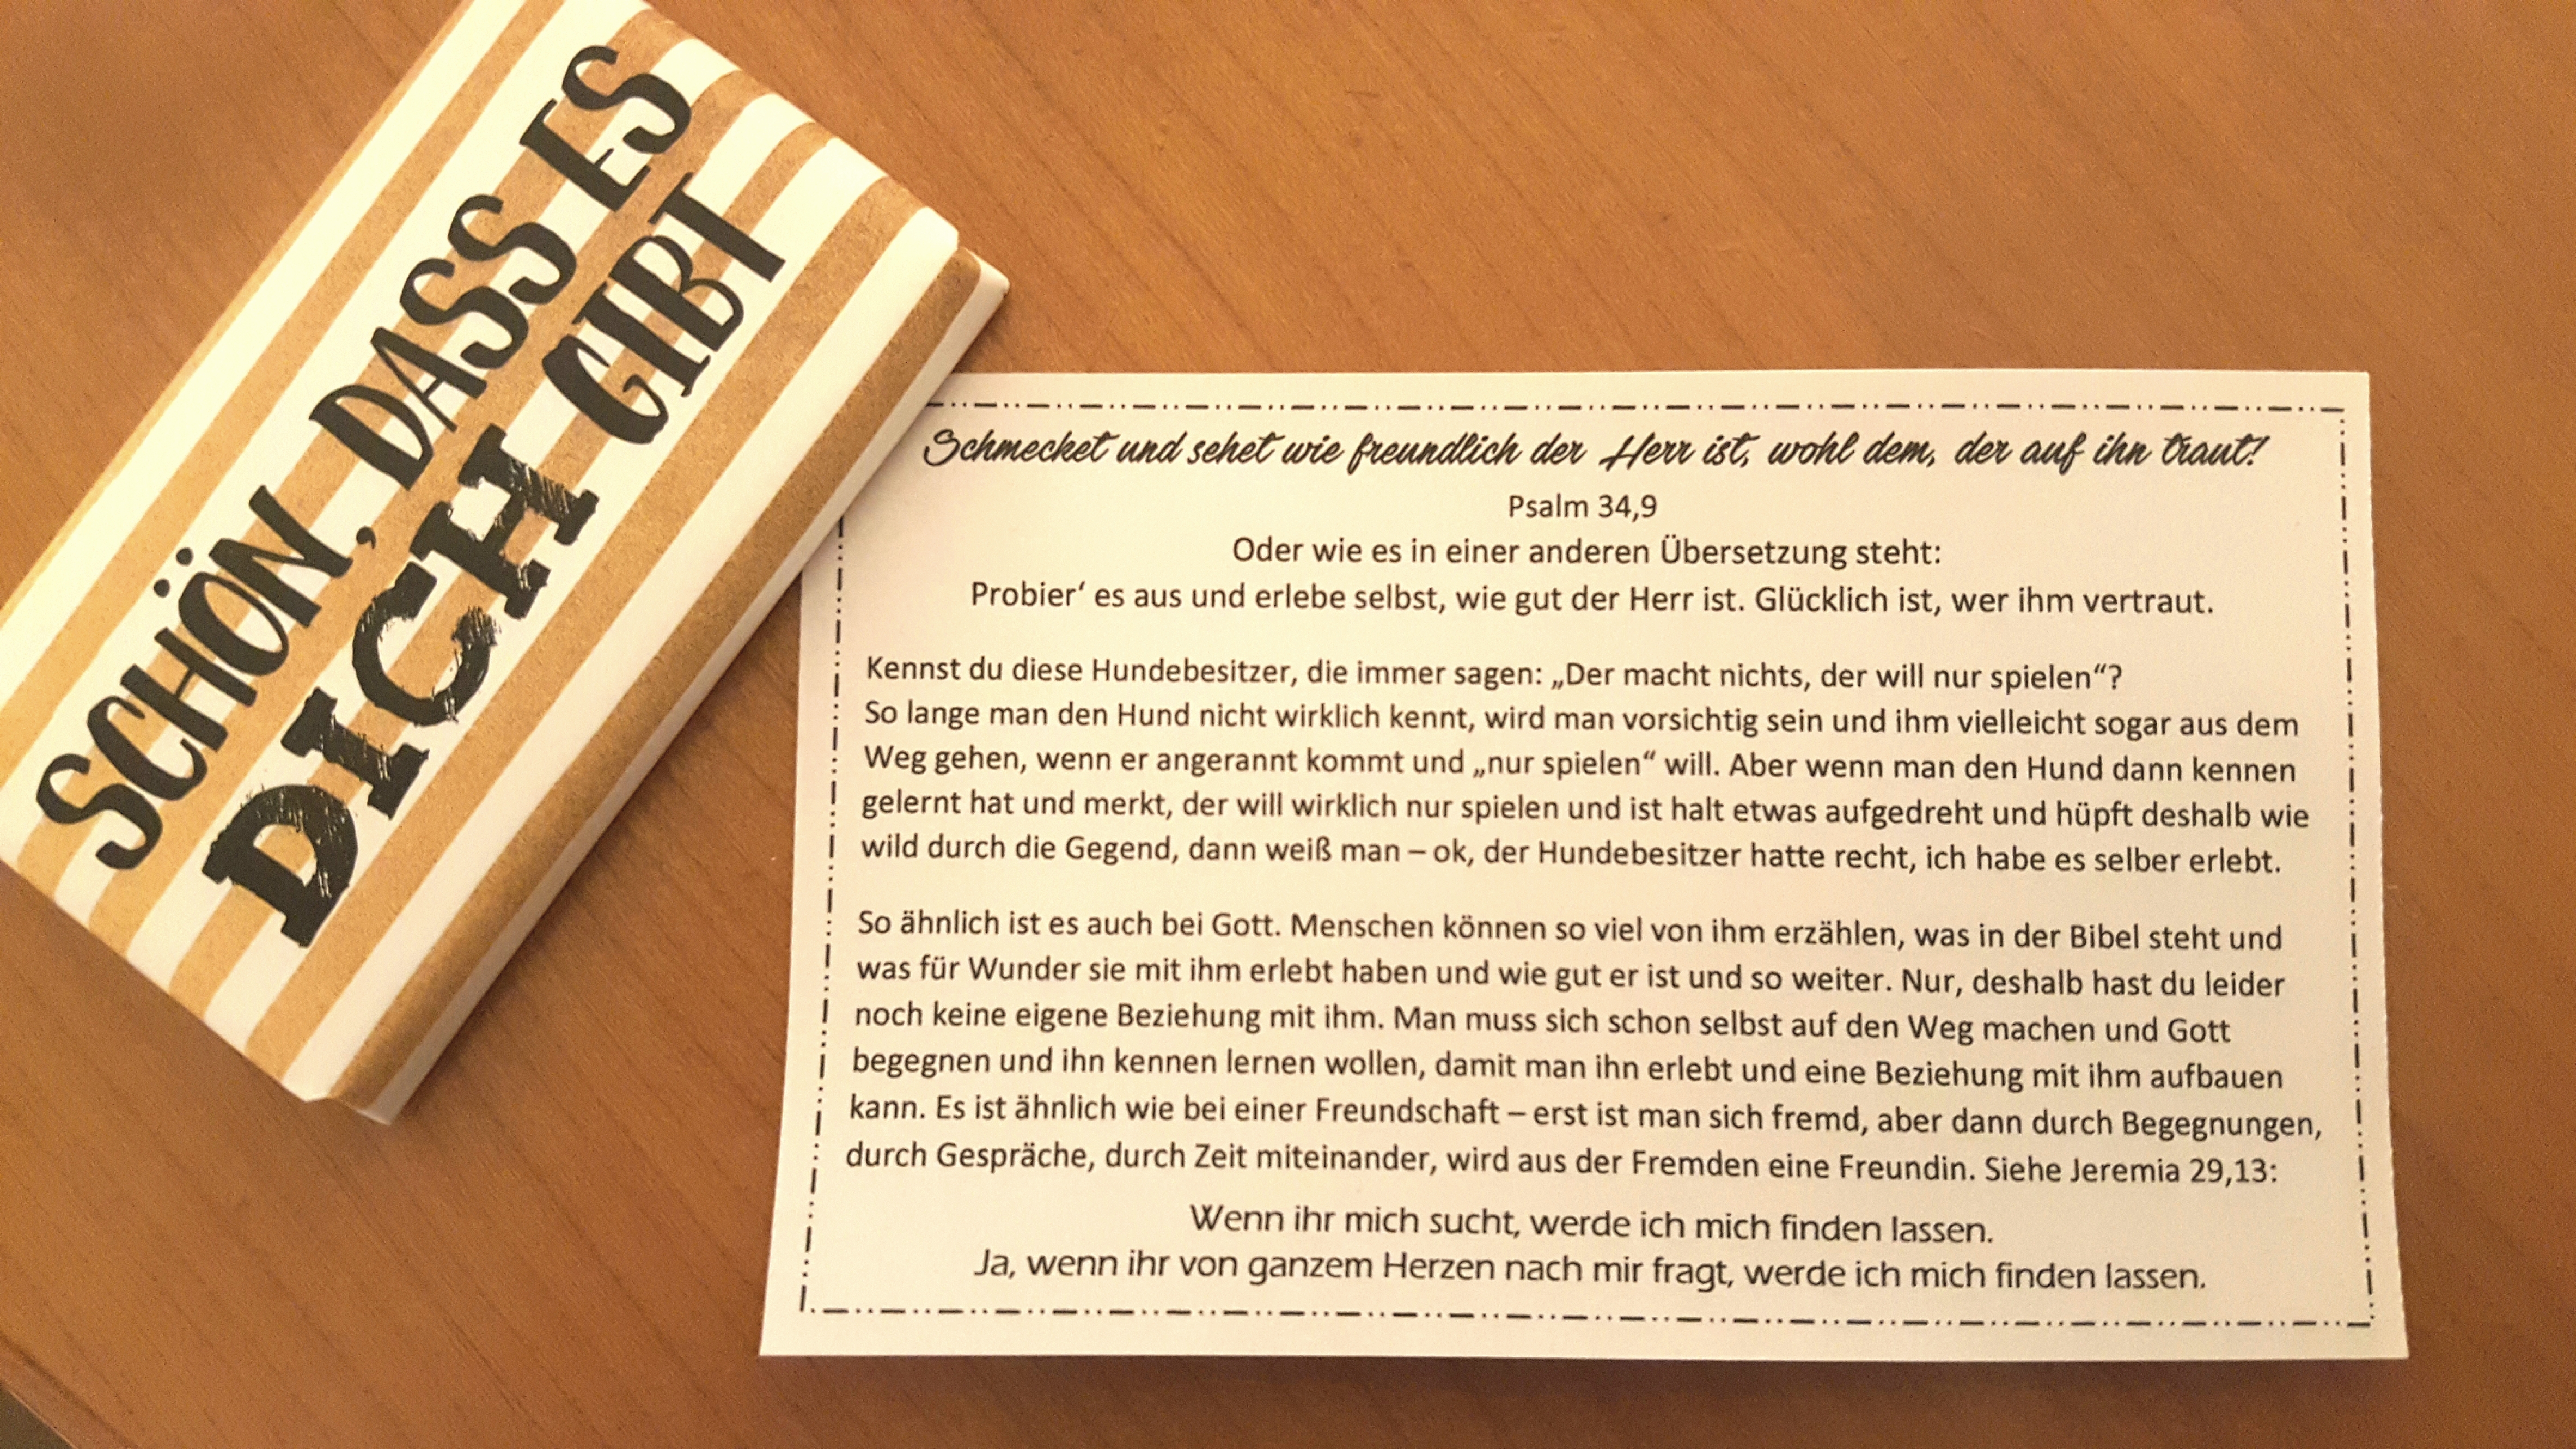 SCHÖN, DASS ES
DICH GIBT
Schmecket und sehet wie freundlich der Herr ist, wohl dem, der auf ihn traut!
Psalm 34,9
Oder wie es in einer anderen Übersetzung steht:
Probier‘ es aus und erlebe selbst, wie gut der Herr ist. Glücklich ist, wer ihm vertraut.
Kennst du diese Hundebesitzer, die immer sagen: „Der macht nichts, der will nur spielen“?
So lange man den Hund nicht wirklich kennt, wird man vorsichtig sein und ihm vielleicht sogar aus dem
Weg gehen, wenn er angerannt kommt und „nur spielen“ will. Aber wenn man den Hund dann kennen
gelernt hat und merkt, der will wirklich nur spielen und ist halt etwas aufgedreht und hüpft deshalb wie
wild durch die Gegend, dann weiß man – ok, der Hundebesitzer hatte recht, ich habe es selber erlebt.
So ähnlich ist es auch bei Gott. Menschen können so viel von ihm erzählen, was in der Bibel steht und
was für Wunder sie mit ihm erlebt haben und wie gut er ist und so weiter. Nur, deshalb hast du leider
noch keine eigene Beziehung mit ihm. Man muss sich schon selbst auf den Weg machen und Gott
begegnen und ihn kennen lernen wollen, damit man ihn erlebt und eine Beziehung mit ihm aufbauen
kann. Es ist ähnlich wie bei einer Freundschaft – erst ist man sich fremd, aber dann durch Begegnungen,
durch Gespräche, durch Zeit miteinander, wird aus der Fremden eine Freundin. Siehe Jeremia 29,13:
Wenn ihr mich sucht, werde ich mich finden lassen.
Ja, wenn ihr von ganzem Herzen nach mir fragt, werde ich mich finden lassen.